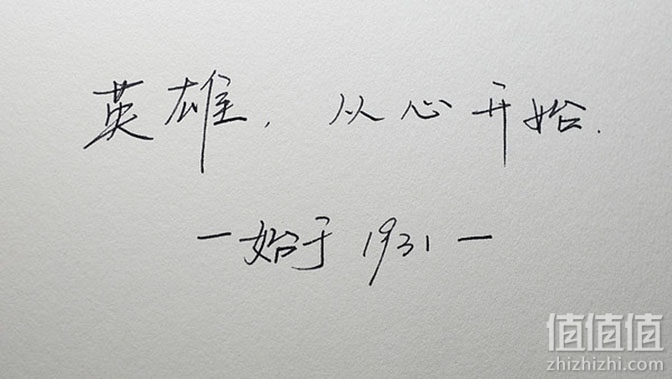 英雄，从心开始.
一始于1931一
值值值
zhizhizhi.com